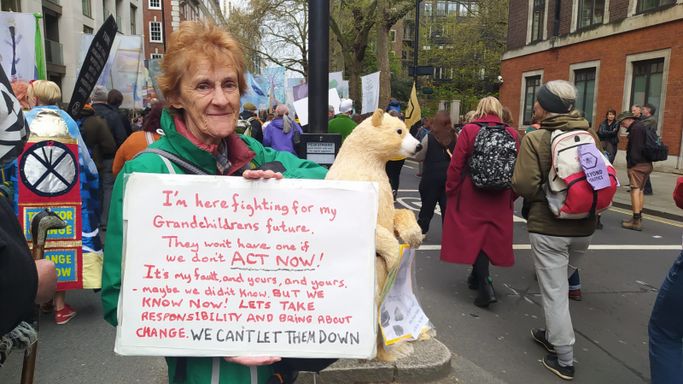 I'm here fighting for my
Grandchildrens future.
They wont have one if
we don't ACT NOW!
It's my fault, and yours, and yours.
- maybe we didn't know. BUT WE
KNOW NOW! LETS TAKE
RESPONSIBILITY AND BRING ABOUT
CHANGE. WE CAN'T LET THEM DOWN
BEYOND
POLITICS
NOW